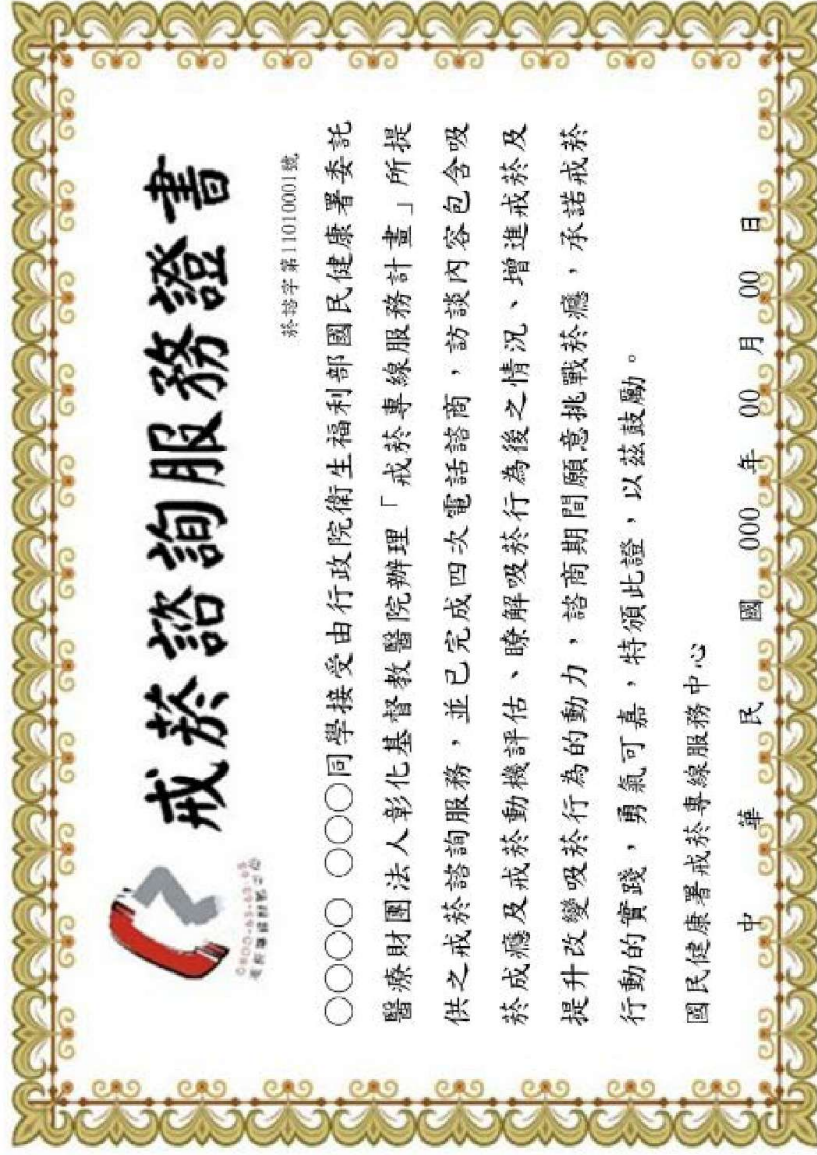 戒菸諮詢服務證書
0800-63-63-63
菸諮字第11010001號
○○○○ ○○○同學接受由行政院衛生福利部國民健康署委託
醫療財團法人彰化基督教醫院辦理「戒菸專線服務計畫」所提
供之戒菸諮詢服務，並已完成四次電話諮商，訪談內容包含吸
菸成癮及戒菸動機評估、瞭解吸菸行為後之情況、增進戒菸及
提升改變吸菸行為的動力，諮商期間願意挑戰菸癮，承諾戒菸
行動的實踐，勇氣可嘉，特頒此證，以茲鼓勵。
國民健康署戒菸專線服務中心
中 華 民 國 000 年 00 月 00 日